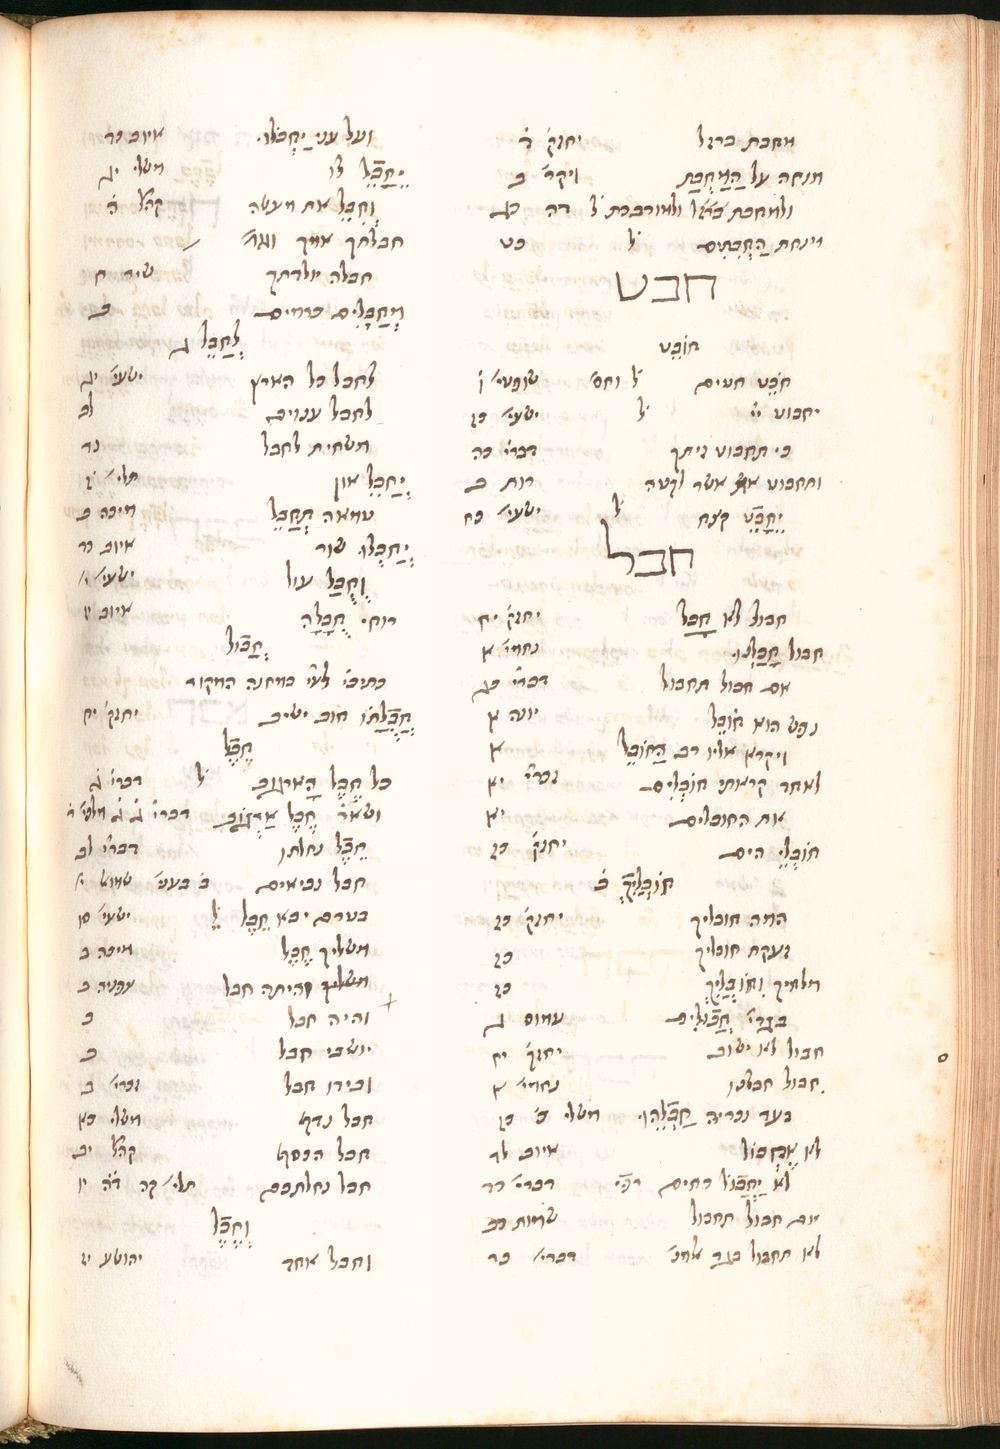 מחבת ברזל יחזק׳ ד
מנחה על הַמַּחֲבַת ויקר׳ ב
ולמחבת ולמורבכת ל׳ דה כג
הַחֲבִתִּים ל׳
חבט
חוֹבֵט
חֹבֵט חטים ל׳ וחס׳ שופטי׳ ו
יחבוט יי׳ ל׳ ישעי׳ כז
כי תחבוט זיתך דברי׳ כד
ותחבוט את אשר לקטה רות ב
יֵחָבֶט קצח ל׳ ישעי׳ כח
חבל
חבול לא חָבָל יחזק׳ יח
חבול חָבַלְנוּ נחמי׳ א
אם חבול תחבול דברי׳
נפש הוא חוֹבֵל
ויקרא אליו רב הַחוֹבֵל יונה א
לאחד קראתי חוֹבְלִים זכרי׳ יא
את החובלים יא
חוֹבְלֵי הים יחזק׳ כז
חוֹבְלַיִךְ ב׳
המה חובליך יחזק׳ כז
זעקת חובליך כז
מלחיך וְחוֹבְלַיִךְ כז
בגדי׳ חֲבוּלִים עמוס ב
חבול לא ישוב יחזק׳ יח
חבול חבלנו נחמי׳ א
בעד נכריה חַבְלֵהוּ משלי כ׳ כז
לא
לא יַחֲבוֹל רחים דברי׳ כד
אם חבול תחבול שמות כב
לא תחבול בגד אלמנ׳ דברי׳ כד
ועל עני יַחְבֹּלוּ איוב כד
יֵחָבֶל לו משלי יג
וְחִבֵּל את מעשה קהל׳ ה
חבלתך אמך וגו׳
חבלה יולדתך שיר ח
מְחַבְּלִים כרמים ב
לְחַבֵּל ג
לחבל כל הארץ ישעי׳ יג
לחבל ענוים לב
משחית לחבל נד
יְחַבֶּל און תלי׳ ז
טמאה תְּחַבֵּל מיכה ב
יְחַבְּלוּ שור איוב כד
וְחֻבַּל עול ישעי׳ י
רוחי חֻבָּלָה איוב יז
חֲבוֹל
חֲבֹלָתוֹ חוב ישיב יחזק׳ יח
חֶבֶל
כל חֶבֶל הָארגוב ל׳ דברי׳ ג
ושאר׳ חֶבֶל אַרְגּוֹב דברי׳ ג׳
חֶבֶל נחלתו דברי׳ לב
חבל נביאים ב׳ בעני׳ שמו׳ א י
בטרם יבא חֵבֶל ל׳ ישעי׳ סו
משליך חֶבֶל מיכה ב
והיתה חבל צפניה ב
והיה חבל ב
יושבי חבל ב
ובידו חבל זכרי׳ ב
חבל נדף משלי כא
חבל הכסף קהל׳ יב
חבל נחלתכם תלי׳ קה דה׳ יו
וְחֶבֶל
וחבל אחד יהושע יז